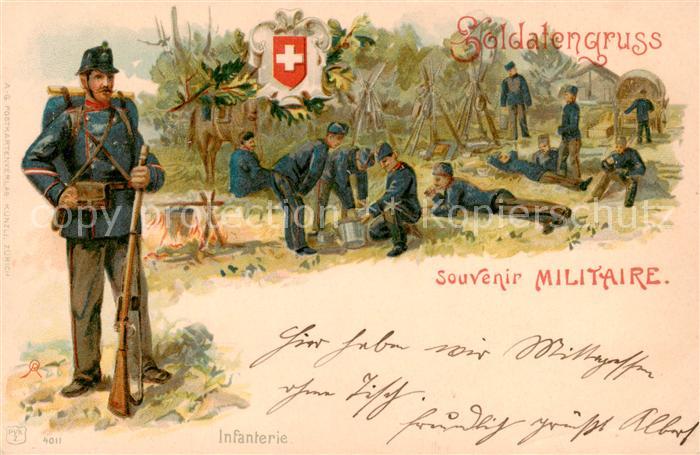 Soldatengruss
copy protection Kopierschutz
A.-G. POSTKARTENVERLAG KÜNZLI, ZÜRICH.
Souvenir MILITAIRE.
Hier haben wir Mittagessen
ohne Tisch.
freundlich grüßt Albert
4011
Infanterie.